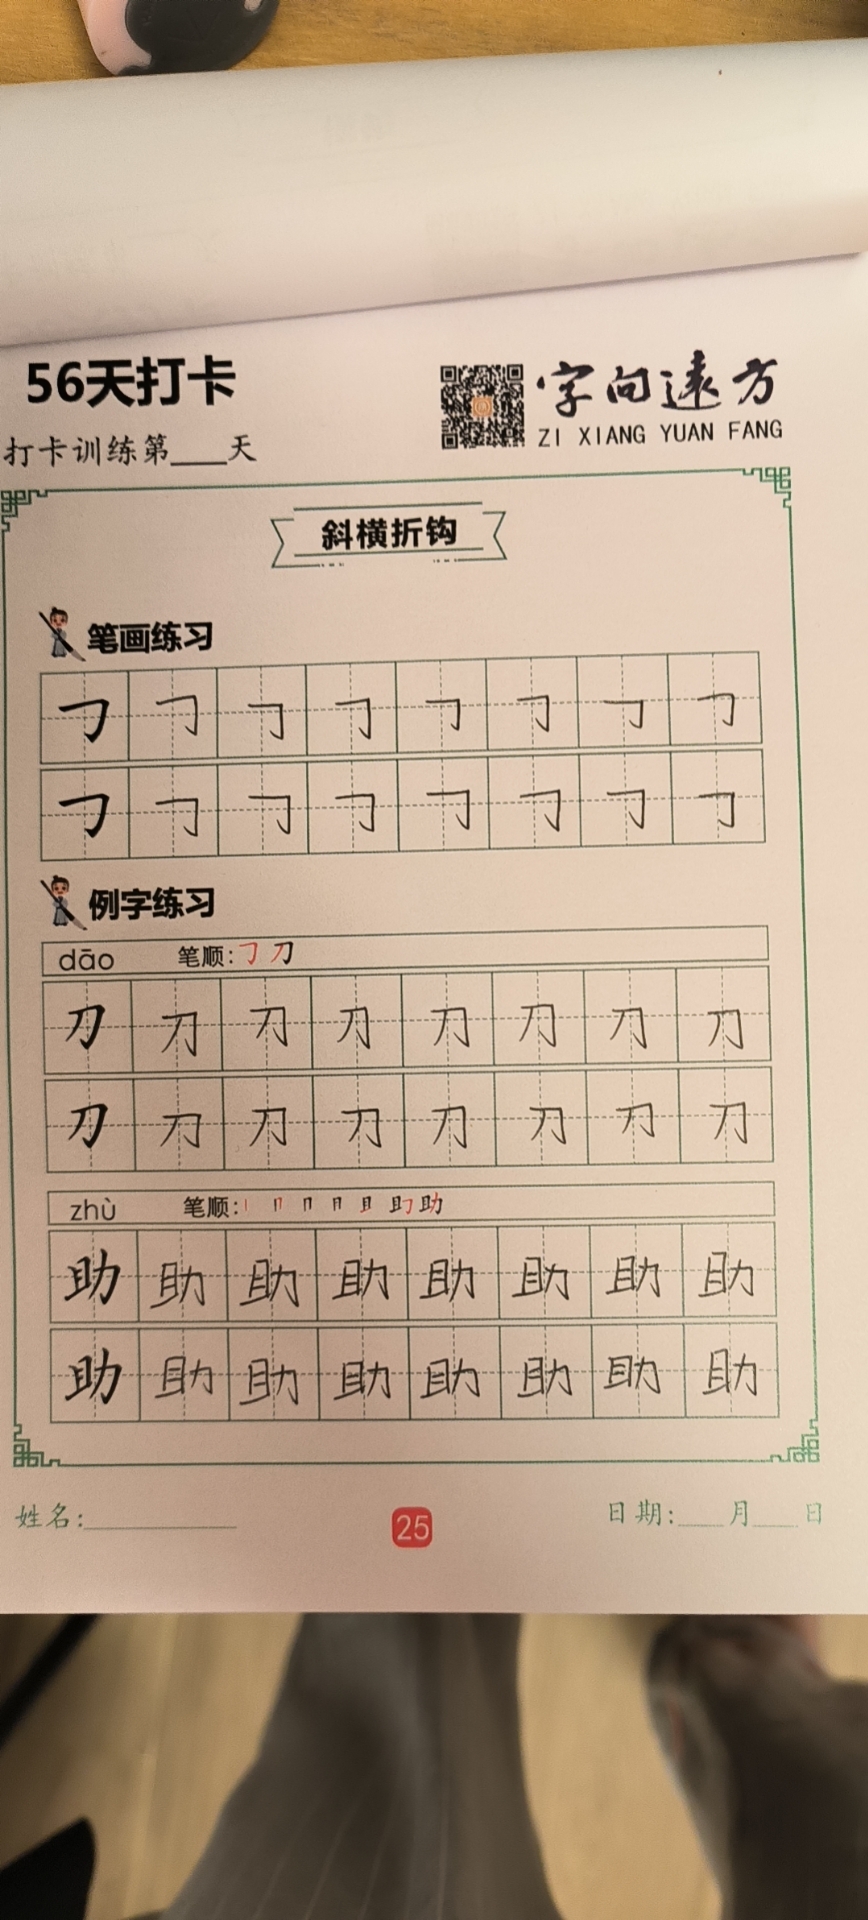 56天打卡
字向遠方
ZI XIANG YUAN FANG
打卡训练第____天
斜横折钩
笔画练习
㇆ ㇆ ㇆ ㇆ ㇆ ㇆ ㇆ ㇆
㇆ ㇆ ㇆ ㇆ ㇆ ㇆ ㇆ ㇆
例字练习
dāo 笔顺: ㇆ 刀
刀 刀 刀 刀 刀 刀 刀 刀
刀 刀 刀 刀 刀 刀 刀 刀
zhù 笔顺: 助
助 助 助 助 助 助 助 助
助 助 助 助 助 助 助 助
姓名:__________ 25 日期:___月___日